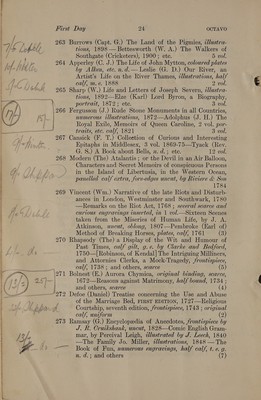 First Day 24 OCTAVO
263 Burrows (Capt. G.) The Land of the Pigmies, illustra-
tions, 1898—Bettesworth (W. A.) The Walkers of
Southgate (Cricketers), 1900; etc. 5 vol.
264 Apperley (C. J.) The Life of John Mytton, coloured plates
by Alken, etc. n. d.—Leslie (G. D.) Our River, an
Artist's Life on the River Thames, illustrations, half
calf, m. e. 1888 2 vol.
265 Sharp (W.) Life and Letters of Joseph Severn, illustra-
tions, 1892—Elze (Karl) Lord Byron, a Biography,
portrait, 1872; etc. 3 vol.
266 Fergusson (J.) Rude Stone Monuments in all Countries,
numerous illustrations, 1872—Adolphus (J. H.) The
Royal Exile, Memoirs of Queen Caroline, 2 vol. por-
traits, etc. calf, 1821 3 vol.
267 Cansick (F. T.) Collection of Curious and Interesting
Epitaphs in Middlesex, 3 vol. 1869-75—Tyack (Rev.
G. S.) A Book about Bells, n. d.; etc. 12 vol.
268 Modern (The) Atalantis; or the Devil in an Air Balloon,
Characters and Secret Memoirs of conspicuous Persons
in the Island of Libertusia, in the Western Ocean,
panelled calf extra, fore-edges uncut, by Riviere & Son
1784
269 Vincent (Wm.) Narrative of the late Riots and Disturb-
ances in London, Westminster and Southwark, 1780
—Remarks on the Riot Act, 1768; several scarce and
curious engravings inserted, in 1 vol.—Sixteen Scenes
taken from the Miseries of Human Life, by J. A.
Atkinson, uncut, oblong, 1807—Pembroke (Earl of)
Method of Breaking Horses, plates, calf, 1761 (3)
270 Rhapsody (The) a Display of the Wit and Humour of
Past Times, calf gilt, g. e. by Clarke and Bedford,
1750—[Robinson, of Kendal] The Intriguing Milliners,
and Attornies Clerks, a Mock-Tragedy, frontispiece,
calf, 1738; and others, scarce (5)
271 Bolnest (E.) Aurora Chymica, original binding, scarce,
1672—Reasons against Matrimony, half bound, 1734;
and others, scarce (4)
272 Defoe (Daniel) Treatise concerning the Use and Abuse
of the Marriage Bed, FIRST EDITION, 1727—Religious
Courtship, seventh edition, frontispiece, 1743; original
calf, uniform (2)
273 Ramsay (G.) Encyclopædia of Anecdotes, frontispiece by
J. R. Cruikshank, uncut, 1828—Comic English Gram-
mar, by Percival Leigh, illustrated by J. Leech, 1840
—The Family Jo. Miller, illustrations, 1848—The
Book of Fun, numerous engravings, half calf, t. e. g.
n. d.; and others (7)